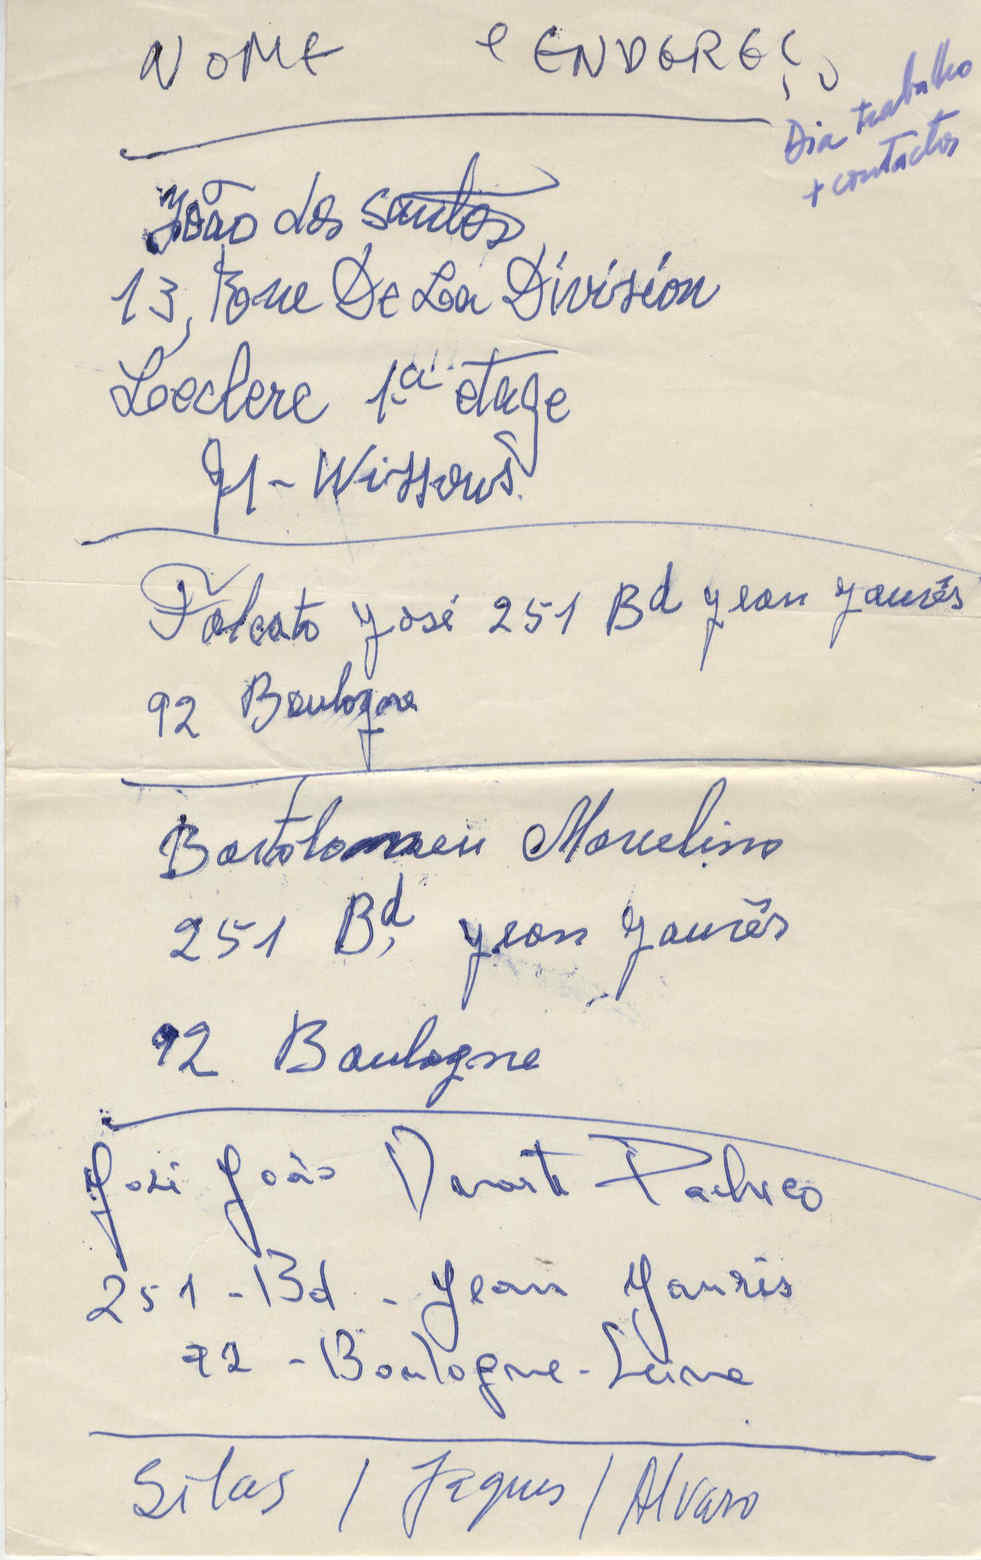 NOME e ENDEREÇO
Dia trabalho
+ contactos
João dos Santos
13, Rue De La Division
Leclerc 1.ª etage
91 - Wissous.
Falcato José 251 Bd Jean Jaurês
92 Boulogne
Bartolomeu Marcelino
251 Bd, Jean Jaurês
92 Boulogne
José João Duarte Pacheco
251 - Bd - Jean Jaurés
92 - Boulogne - Seine
Silas / Jaques / Alvaro